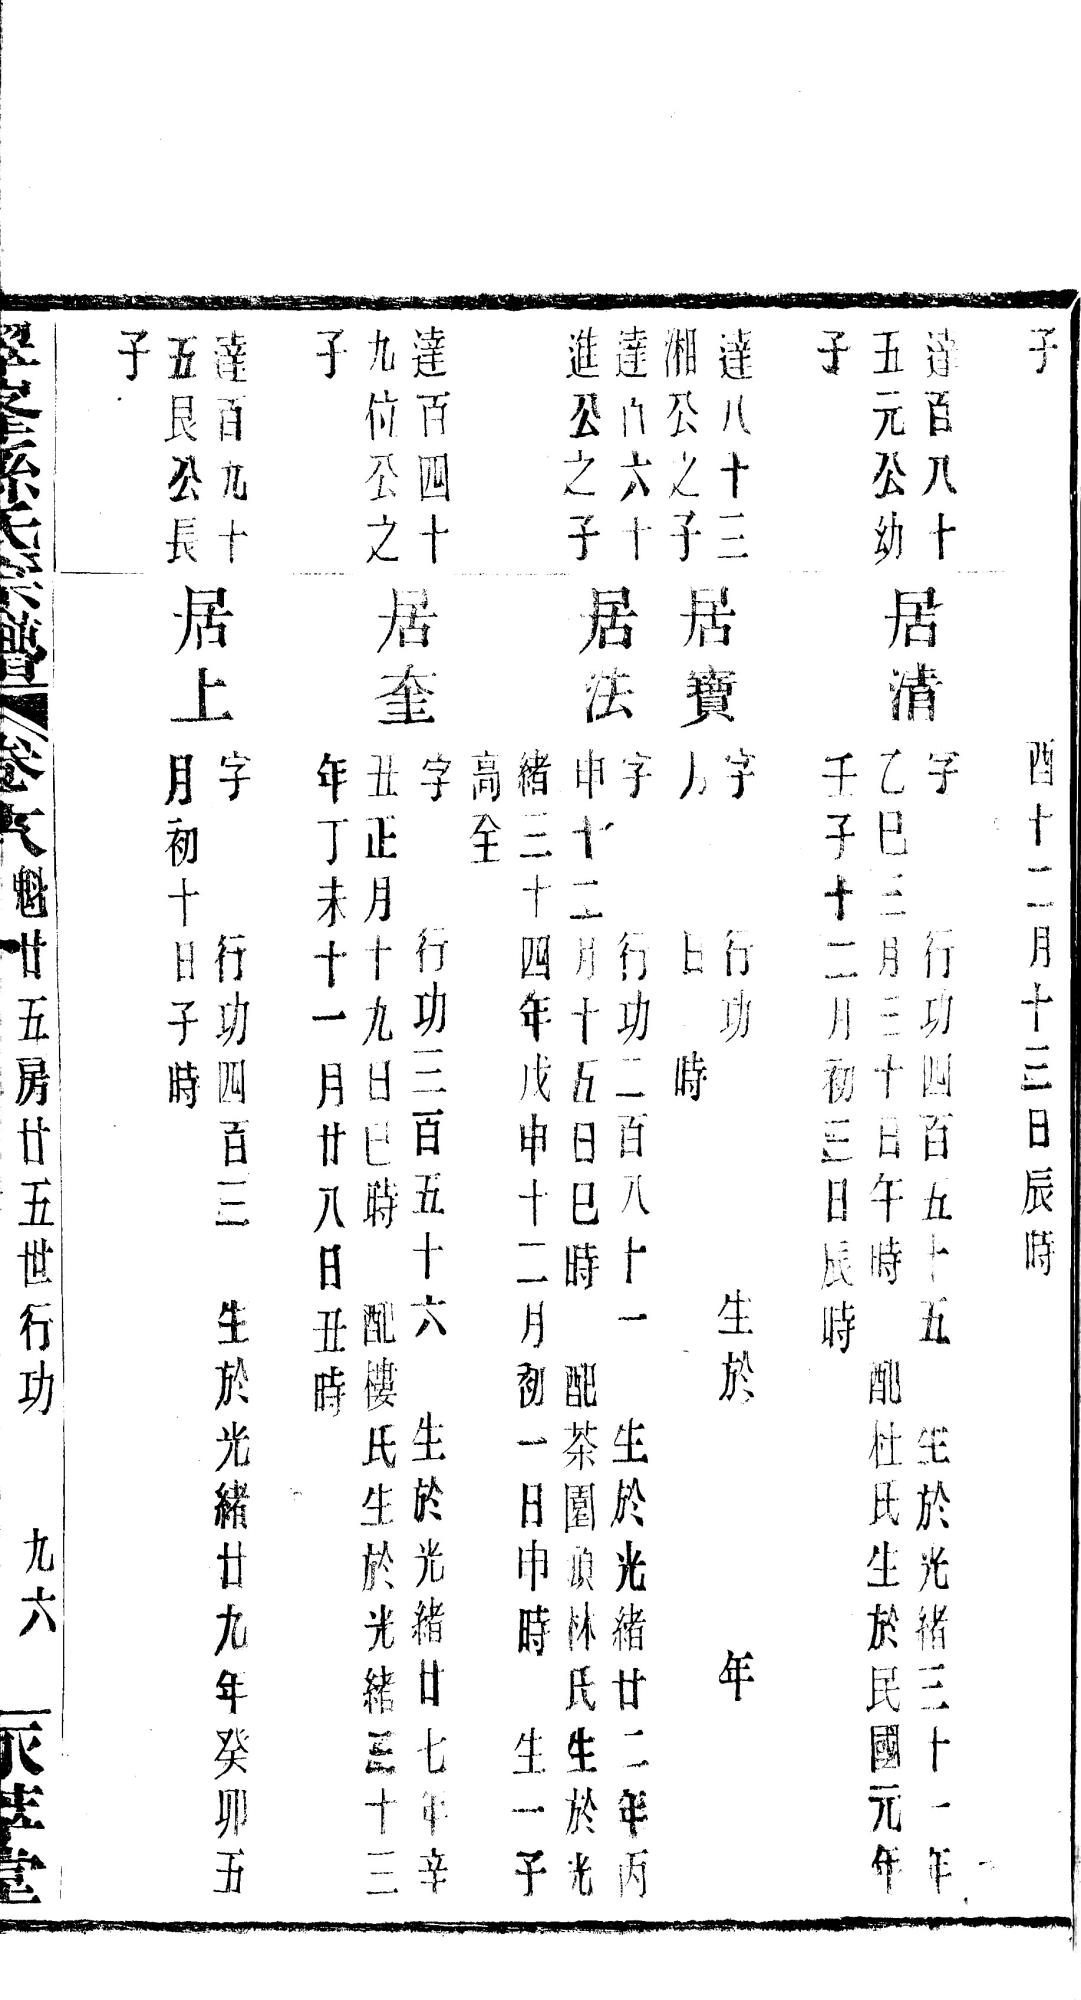 子
酉十二月十三日辰時
達百八十
五元公幼
子
居清
字 行功四百五十五 生於光緒三十一年
乙巳三月三十日午時 配杜氏生於民國元年
壬子十二月初三日辰時
達八十三
湘公之子
居寶
字 行功 生於 年
月 日 時
達百六十
進公之子
居法
字 行功二百八十一 生於光緒廿二年丙
申十二月十五日巳時 配茶園頭林氏生於光
緒三十四年戊申十二月初一日申時 生一子
高全
達百四十
九位公之
子
居奎
字 行功三百五十六 生於光緒廿七年辛
丑正月十九日巳時 配樓氏生於光緒三十三
年丁未十一月廿八日丑時
達百九十
五艮公長
子
居上
字 行功四百三 生於光緒廿九年癸卯五
月初十日子時
孫氏宗譜 卷 魁廿五房廿五世行功 九六 堂